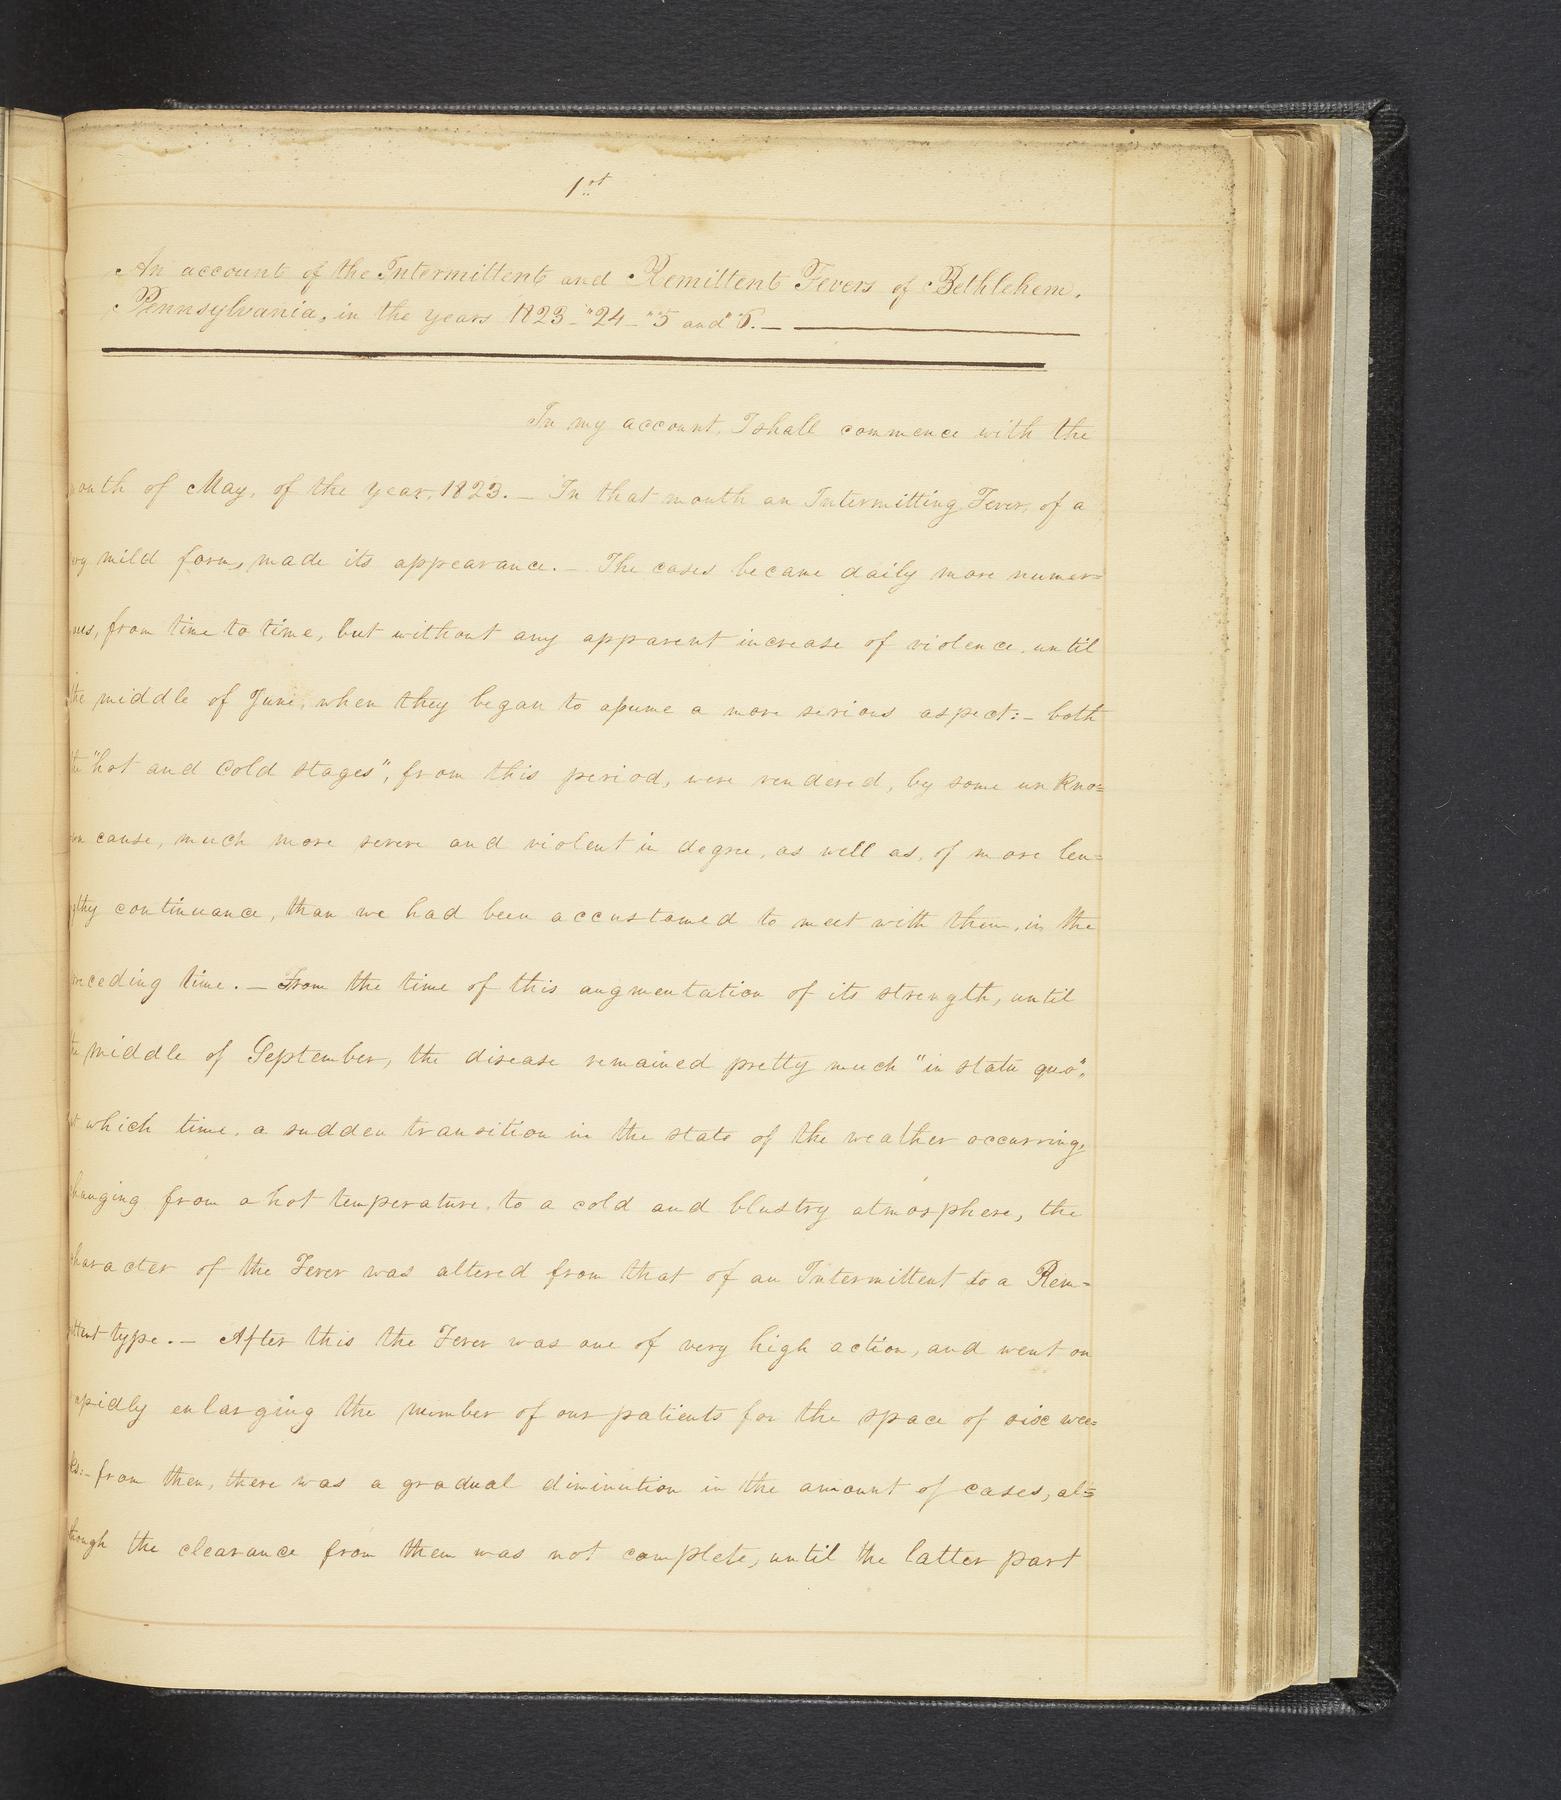 1st
An account of the Intermittent and Remittent Fevers of Bethlehem.
Pennsylvania, in the years 1823 - "24 - "5 and "6. —
In my account, I shall commence with the
onth of May, of the year, 1823. — In that month an Intermitting Fever, of a
ery mild form, made its appearance. — The cases became daily more numer=
ous, from time to time, but without any apparent increase of violence, until
the middle of June, when they began to assume a more serious aspect: — both
the "hot and cold stages", from this period, were rendered, by some unkno=
wn cause, much more severe and violent in degree, as well as, of more len=
gthy continuance, than we had been accustomed to meet with them, in the
receding time. — From the time of this augmentation of its strength, until
the middle of September, the disease remained pretty much "in statu quo",
at which time, a sudden transition in the state of the weather occurring,
hanging from a hot temperature, to a cold and blustry atmosphere, the
character of the Fever was altered from that of an Intermittent to a Rem=
ittent type. — After this the Fever was one of very high action, and went on
rapidly enlarging the number of our patients for the space of six wee=
ks: — from then, there was a gradual diminution in the amount of cases, al=
though the clearance from them was not complete, until the latter part